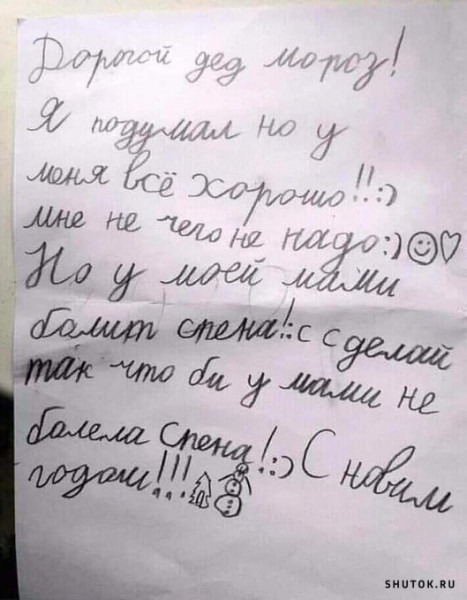 Дорогой дед мороз!
Я подумал но у
меня всё хорошо!!:)
мне не чего не надо:)☺♡
Но у моей мами
болит спена!:с сделай
так что би у мами не
болела спена!:) С новим
годом!!!
SHUTOK.RU